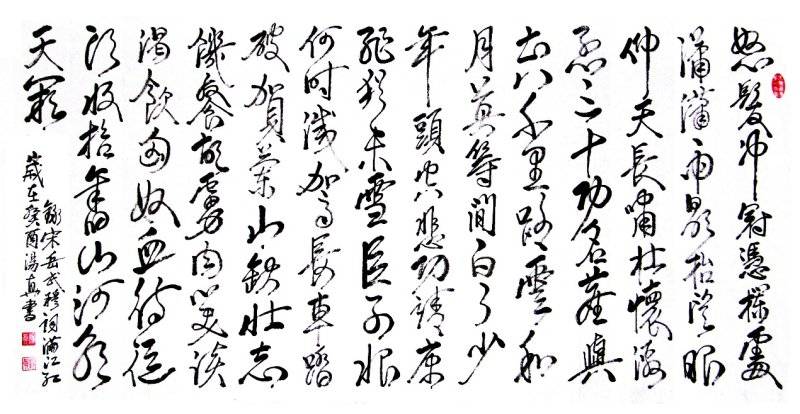 怒髮冲冠憑欄處
瀟瀟雨歇抬望眼
仰天長嘯壯懷激
烈三十功名塵與
土八千里路雲和
月莫等閒白了少
年頭空悲切靖康
恥猶未雪臣子恨
何時滅駕長車踏
破賀蘭山缺壯志
饑餐胡虜肉笑談
渴飲匈奴血待從
頭收拾舊山河朝
天闕
錄宋岳武穆詞滿江紅
歲在癸酉湯真書